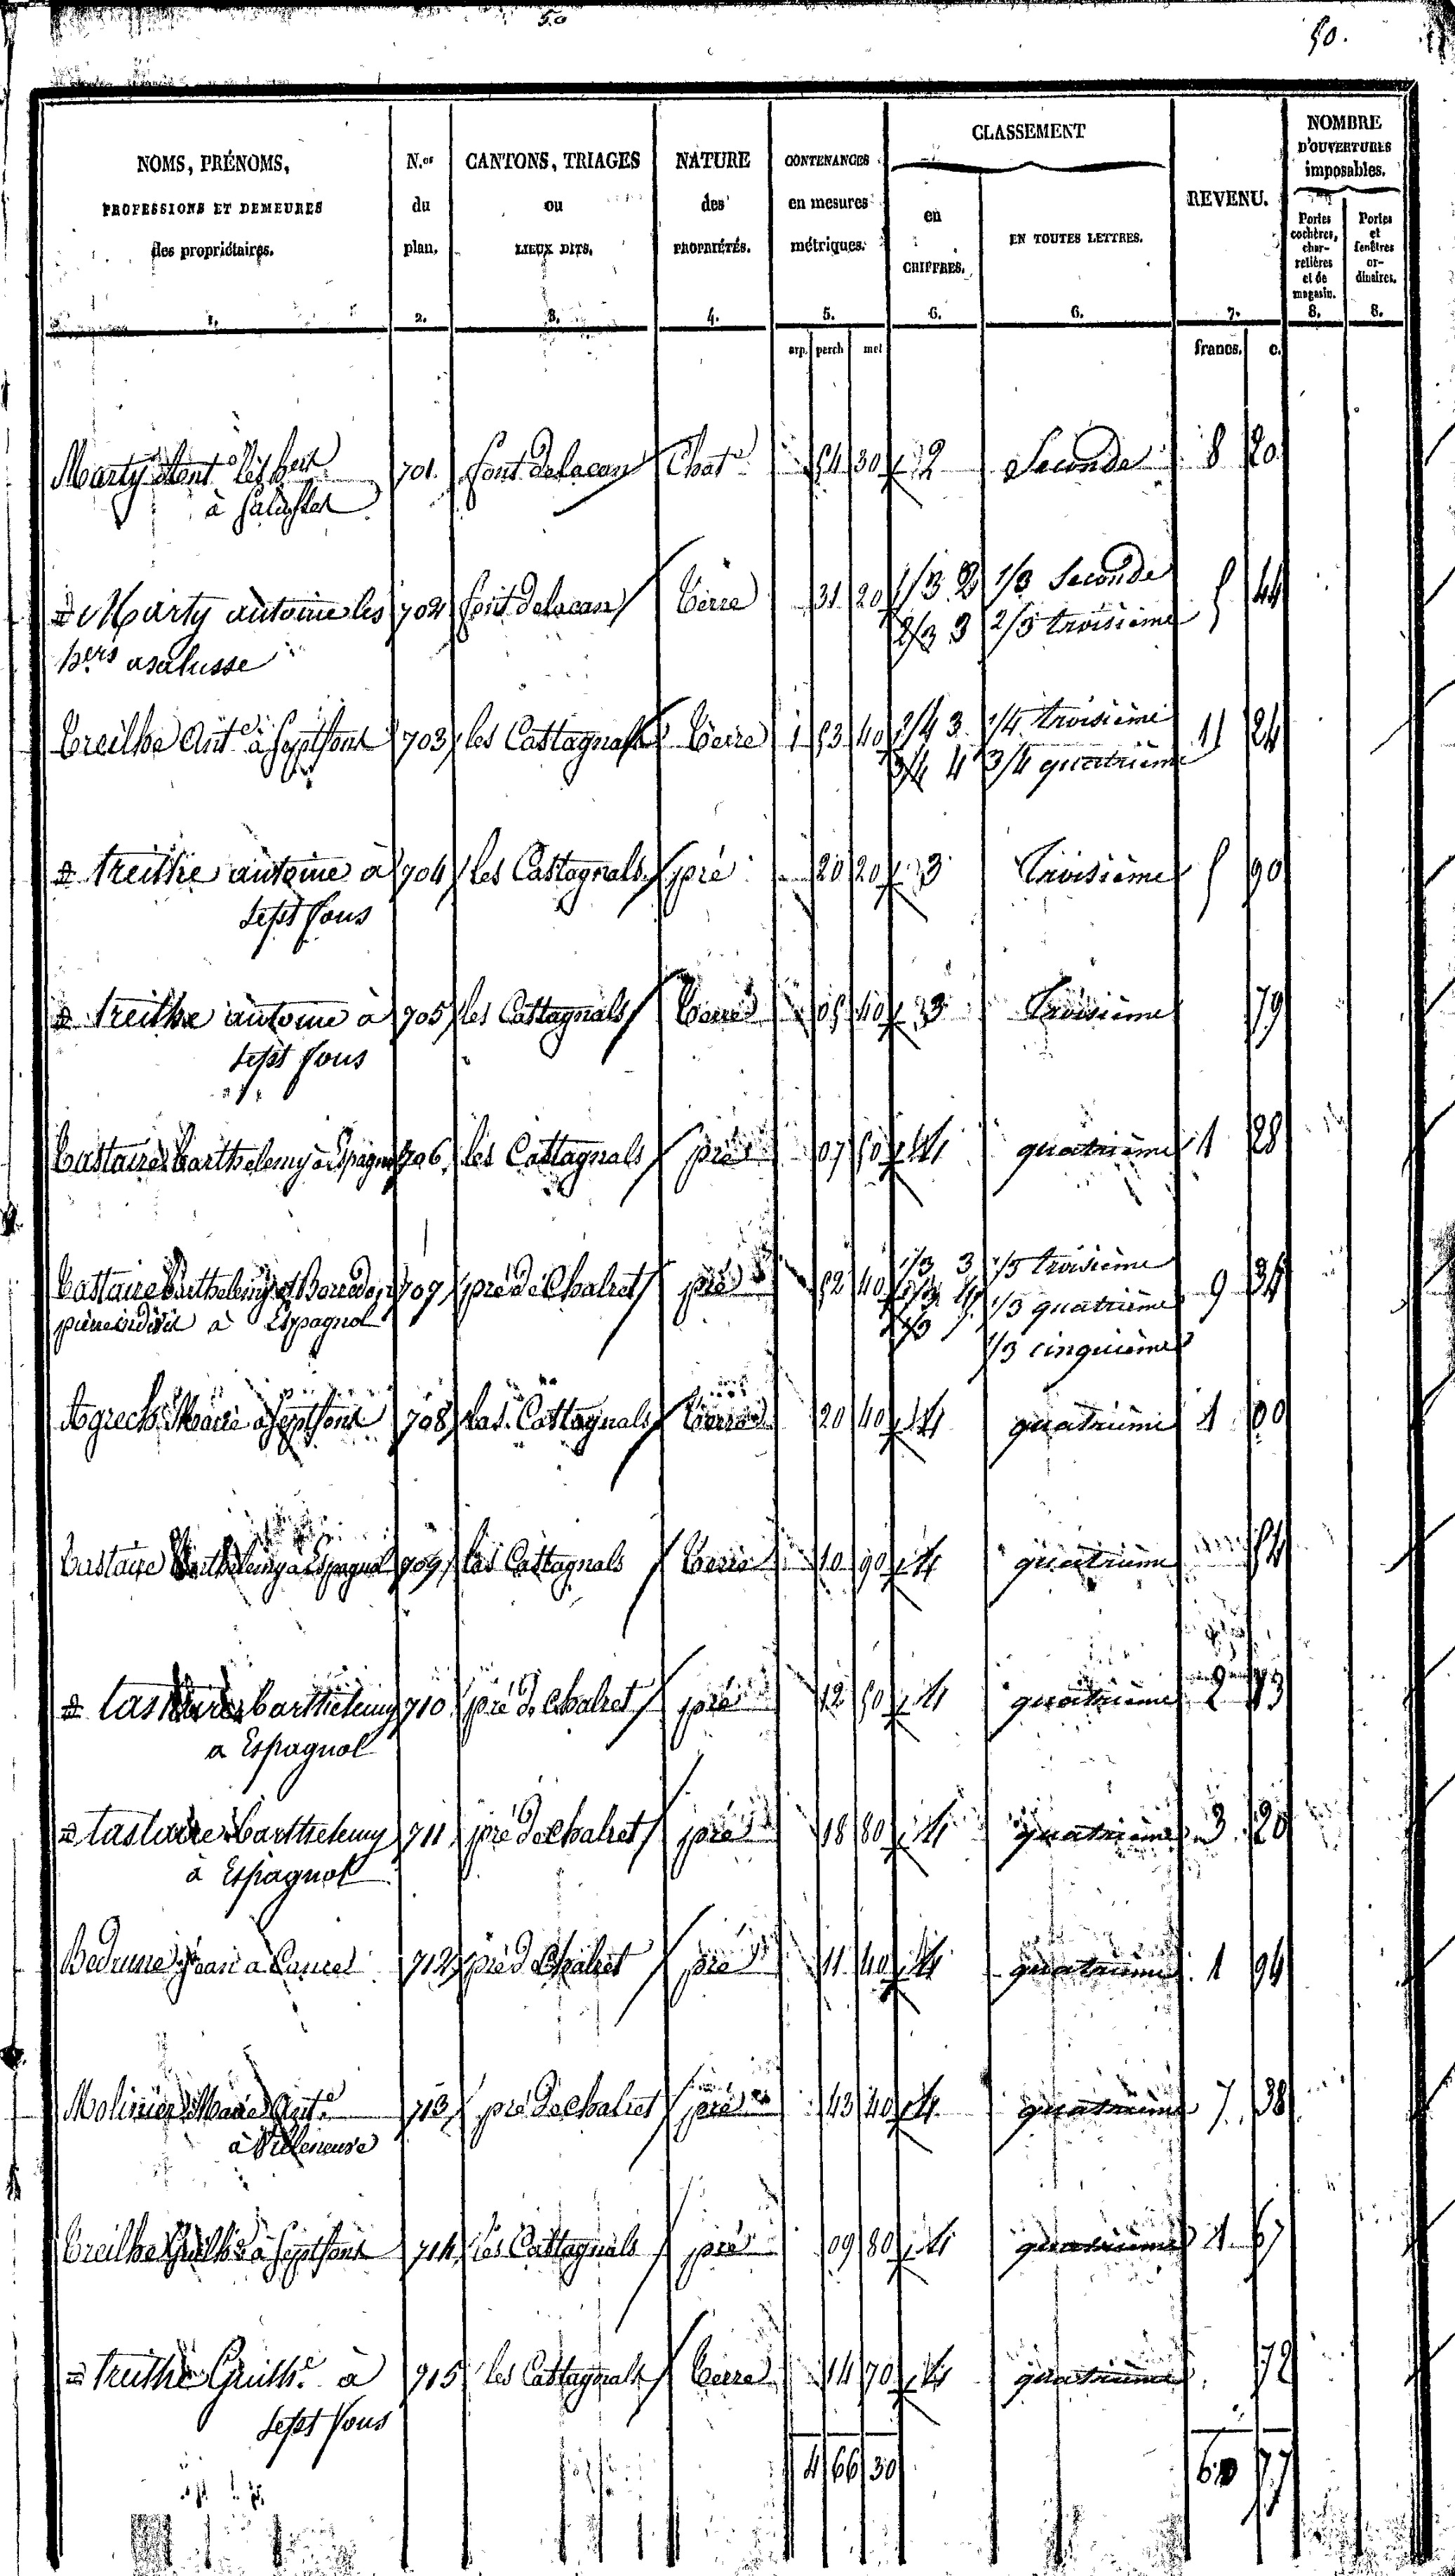 50
50.
NOMS, PRÉNOMS, PROFESSIONS ET DEMEURES des propriétaires. 1.
N.os du plan. 2.
CANTONS, TRIAGES ou LIEUX DITS. 3.
NATURE des PROPRIÉTÉS. 4.
CONTENANCES en mesures métriques. 5.
CLASSEMENT
en CHIFFRES. 6.
EN TOUTES LETTRES. 6.
REVENU. 7.
NOMBRE D'OUVERTURES imposables.
Portes cochères, charretières et de magasin. 8.
Portes et fenêtres ordinaires. 8.
arp. perch met francs. c.
Marty Ant.e les her 701. font delacan Chat 54 30 2 Seconde 8 20
à Salusse
Marty antoine les 702 font delacan Terre 31 20 1/3 2 1/3 Seconde 5 44
hers a salusse 2/3 3 2/3 troisième
Treilhe Ant.e à Septfont 703 les Castagnals Terre 1 53 40 1/4 3 1/4 troisième 11 24
3/4 4 3/4 quatrième
treilhe antoine à 704 les Castagnals pré 20 20 3 Troisième 5 90
sept fons
treilhe antoine à 705 les Castagnals Terre 05 40 3 Troisième 79
sept fons
Tastaire Barthelemy à Espagnol 706 les Castagnals pré 07 50 4 quatrième 1 28
Tastaire Barthelemy et 707 pré de Chalret pré 52 40 1/3 3 1/3 troisième 9 34
pierre indivis à Espagnol 1/3 4 1/3 quatrième
1/3 5 1/3 cinquième
Agrech Marie à Septfont 708 las Castagnals Terre 20 40 4 quatrième 1 00
Tastaire Barthelemy à Espagnol 709 las Castagnals Terre 10 90 4 quatrième 54
tastaire barthelemy 710 pré de Chalret pré 12 50 4 quatrième 2 13
a Espagnol
tastaire barthelemy 711 pré de chalret pré 18 80 4 quatrième 3 20
à Espagnol
Bedrune Jean a 712 pré de Chalret pré 11 40 4 quatrième 1 94
Molinier Marie Ant.e 713 pré de chalret pré 43 40 4 quatrième 7 38
à Villeneuve
Treilhe Guilh.e à Septfont 714 les Castagnals pré 09 80 4 quatrième 1 67
treilhe Guilh.e à 715 les Castagnals Terre 14 70 4 quatrième 72
sept fons
4 66 30 60 77